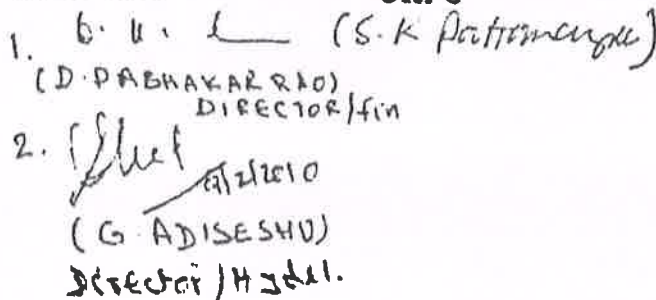 1. (S.K
(D. PABHAKAR RAO)
DIRECTOR/fin
2.
2/2010
(G. ADISESHU)
Director/Hydel.